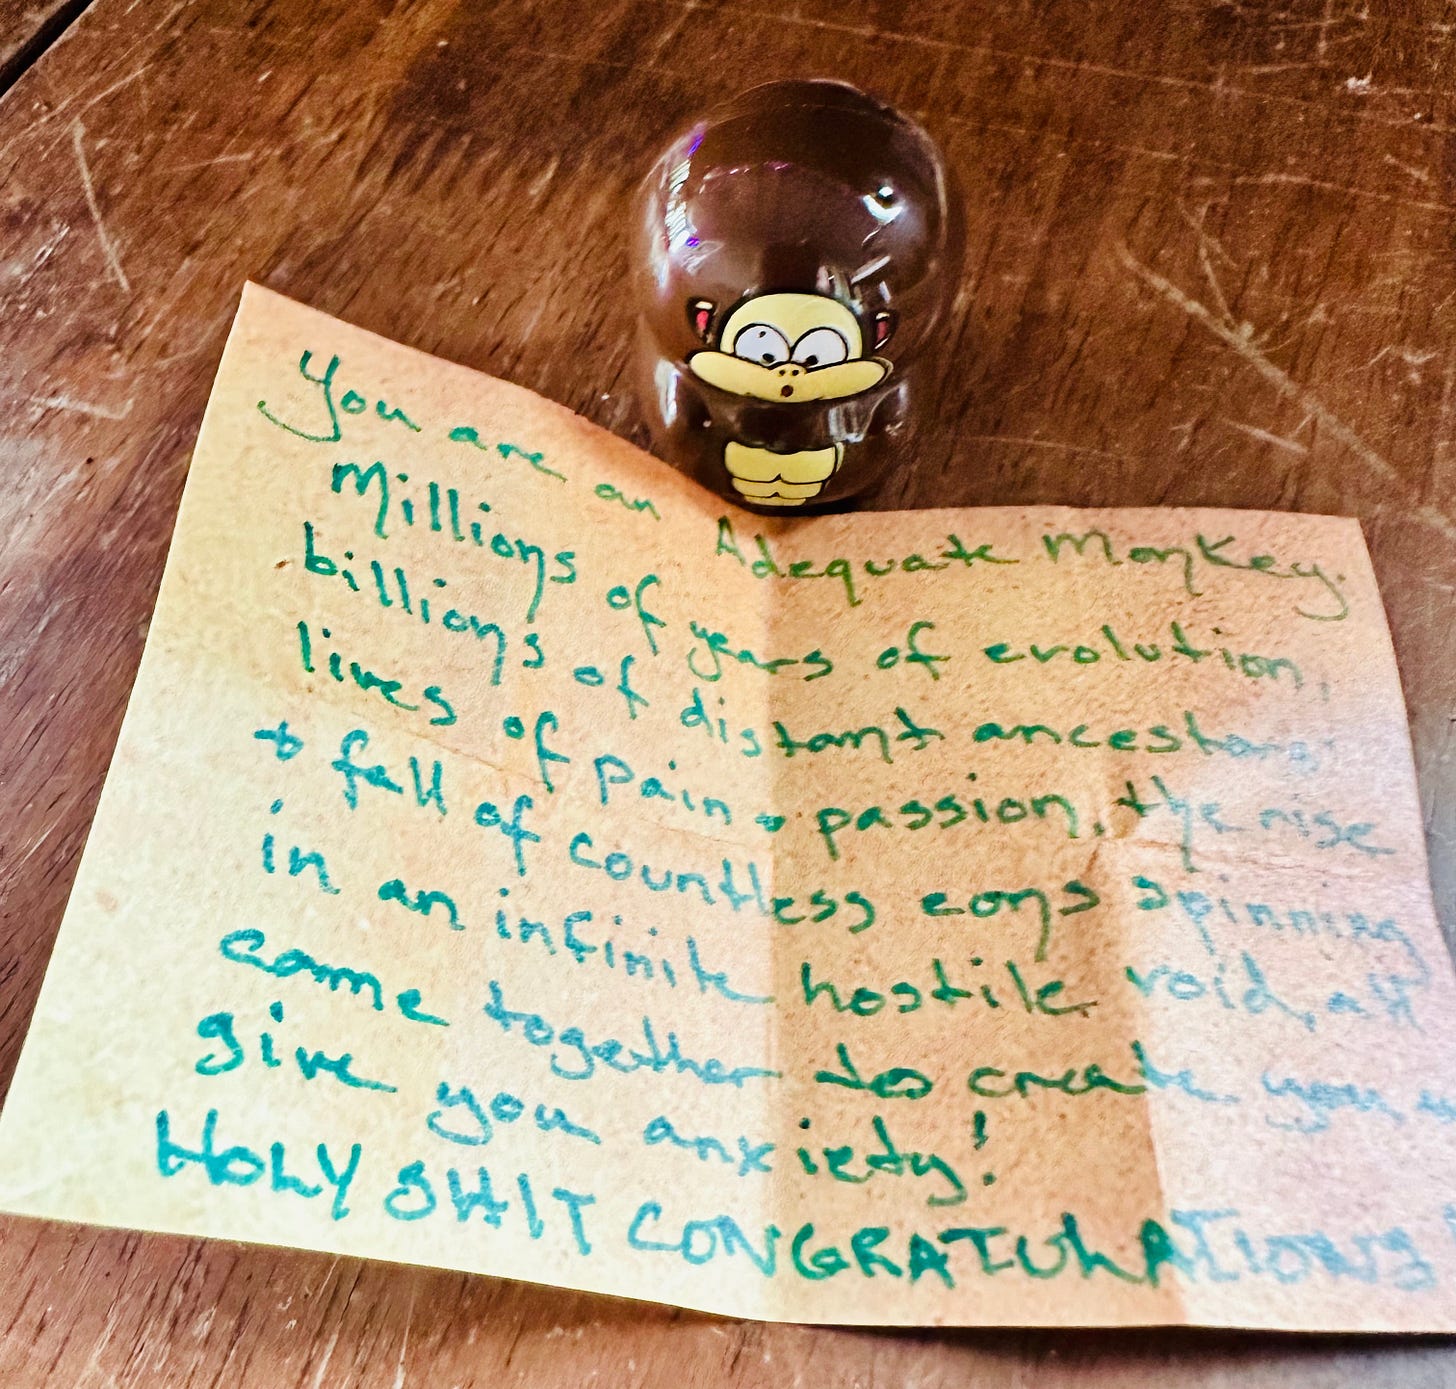 You are an Adequate Monkey.
Millions of years of evolution,
billions of distant ancestors,
lives of pain & passion, the rise
& fall of countless eons spinning
in an infinite hostile void, all
came together to create you
give you anxiety!
HOLY SHIT CONGRATULATIONS